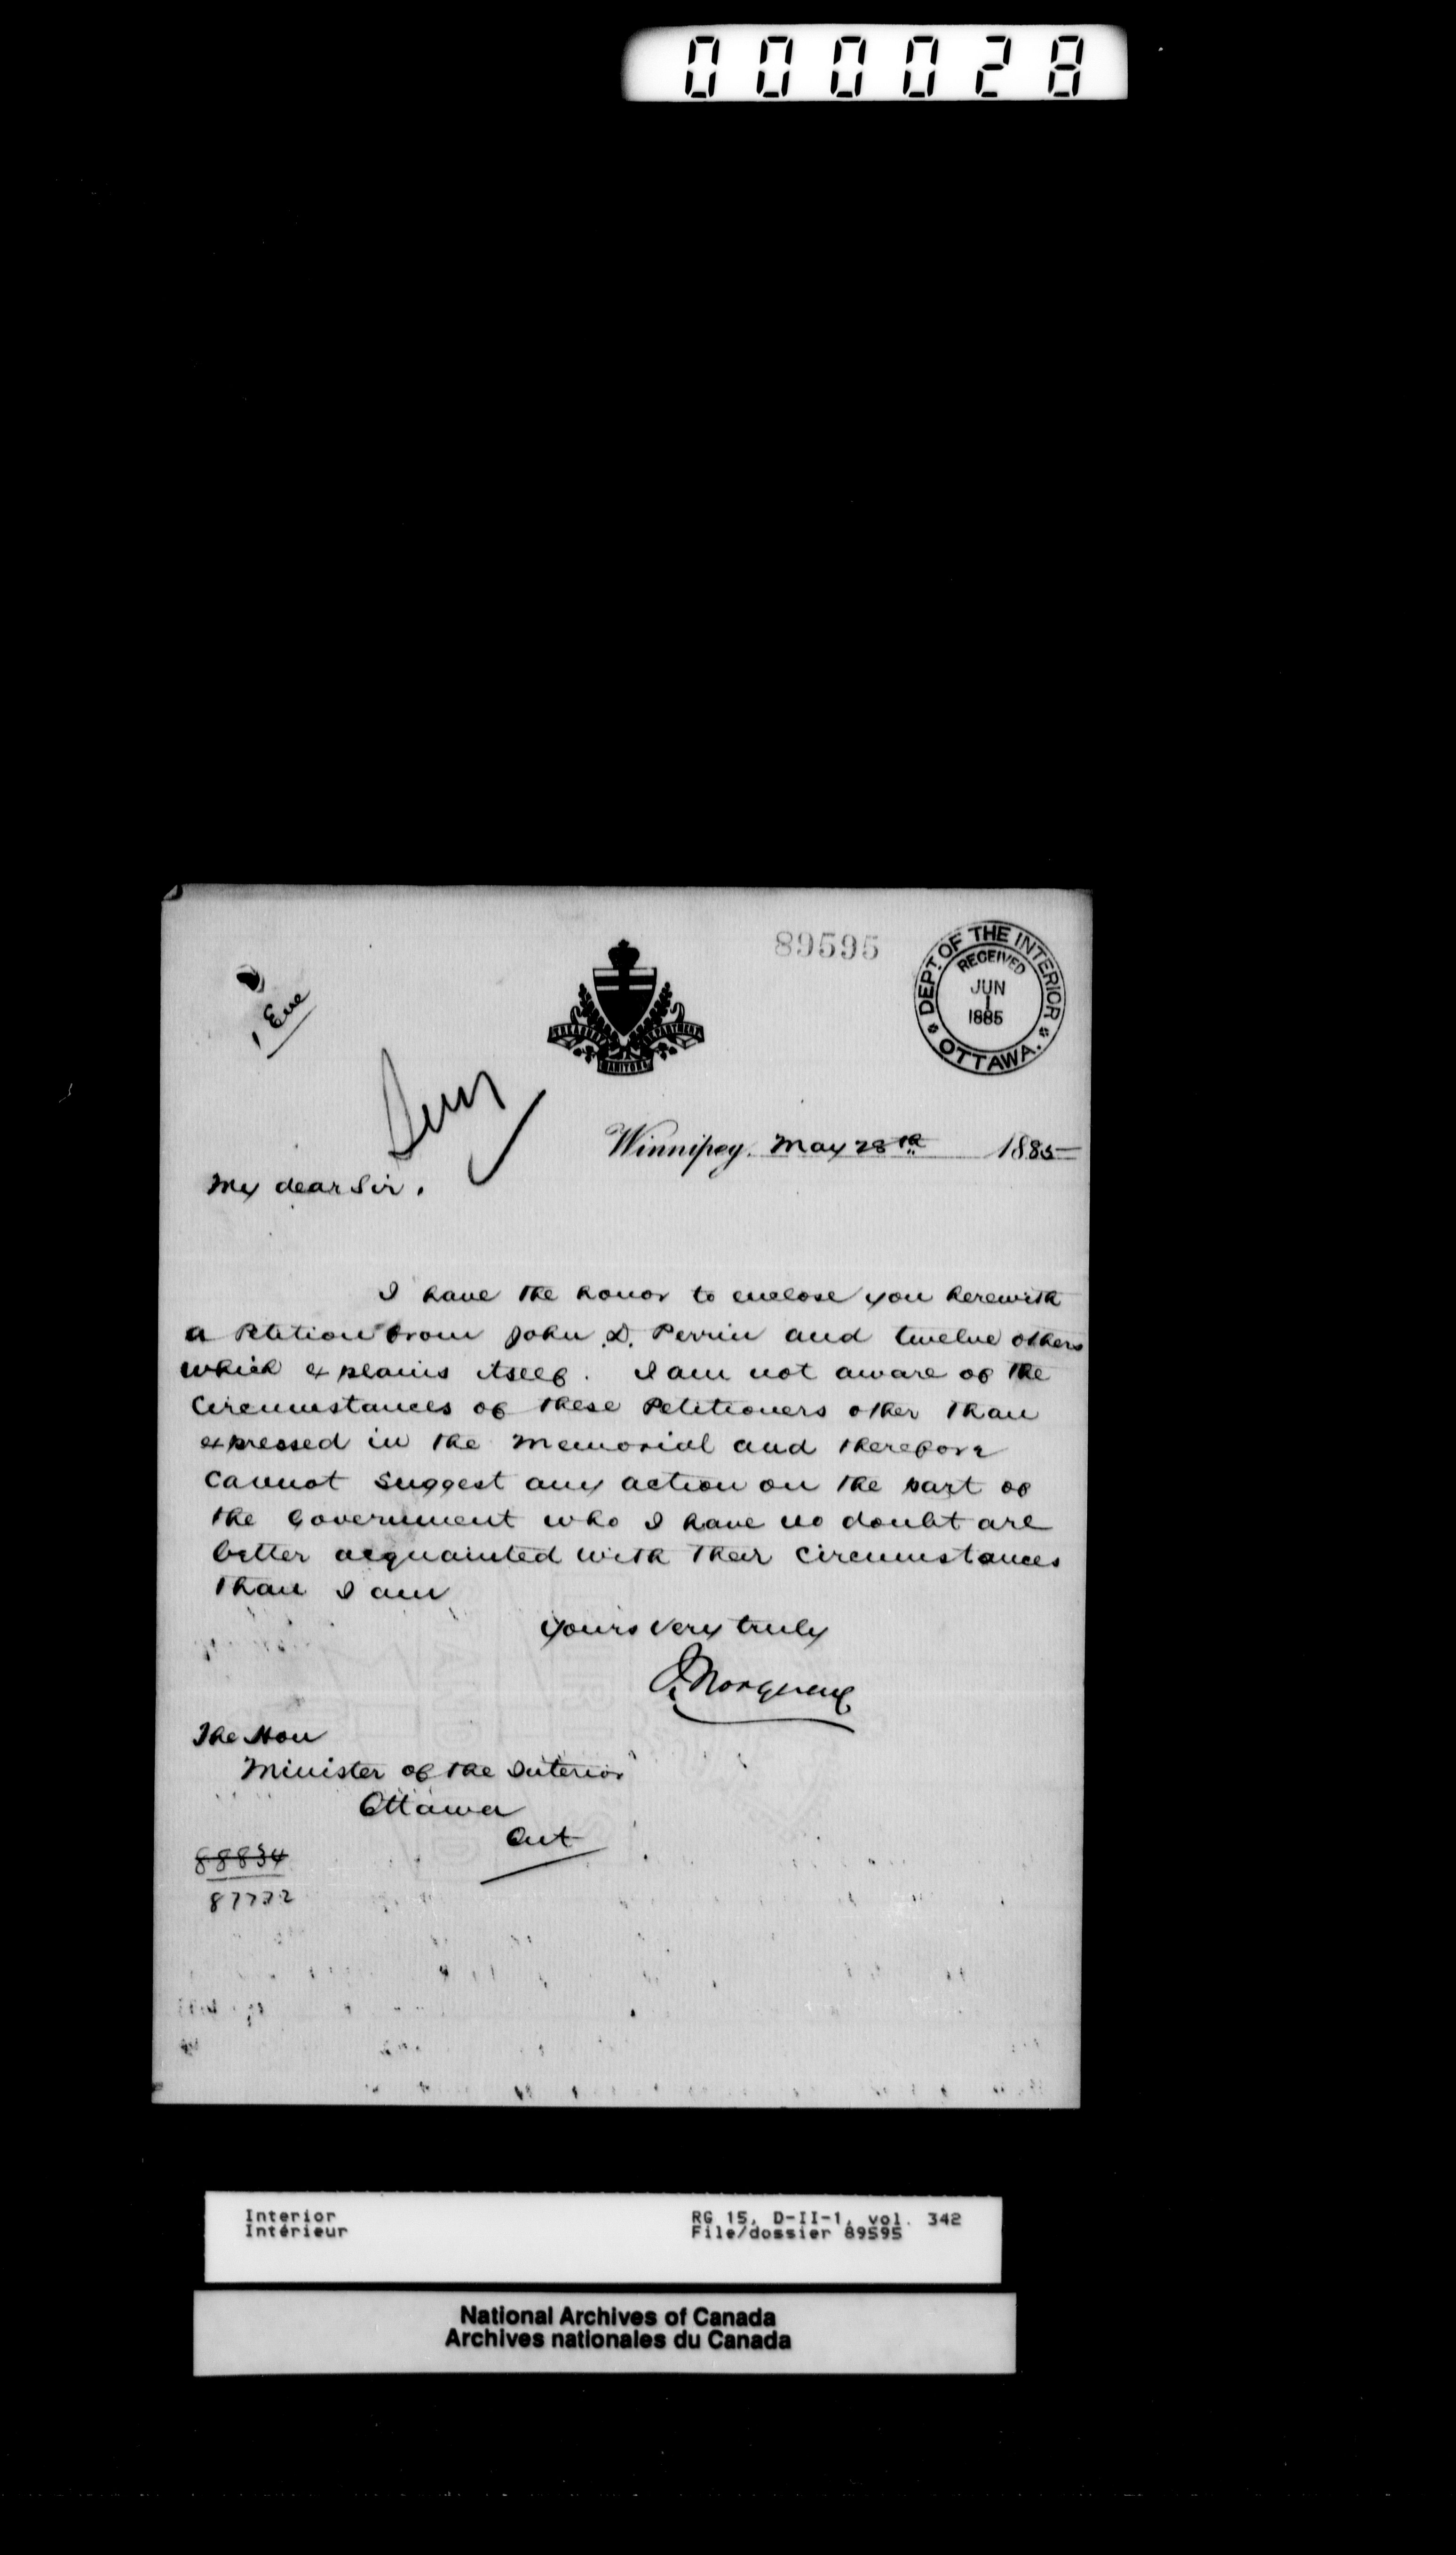 000028
89595
DEPT. OF THE INTERIOR
RECEIVED
JUN
1
1885
OTTAWA.
1 Enc
TREASURY DEPARTMENT
MANITOBA
Winnipeg, May 28th 1885
My dear Sir.
I have the honor to enclose you herewith
a Petition from John D. Perrin and twelve others
which explains itself. I am not aware of the
Circumstances of these Petitioners other than
expressed in the Memorial and therefore
cannot suggest any action on the part of
the Government who I have no doubt are
better acquainted with their Circumstances
than I am
Yours very truly
J. Norquay
The Hon
Minister of the Interior
Ottawa
Ont
88834
87732
Interior
Intérieur
RG 15, D-II-1, vol. 342
File/dossier 89595
National Archives of Canada
Archives nationales du Canada